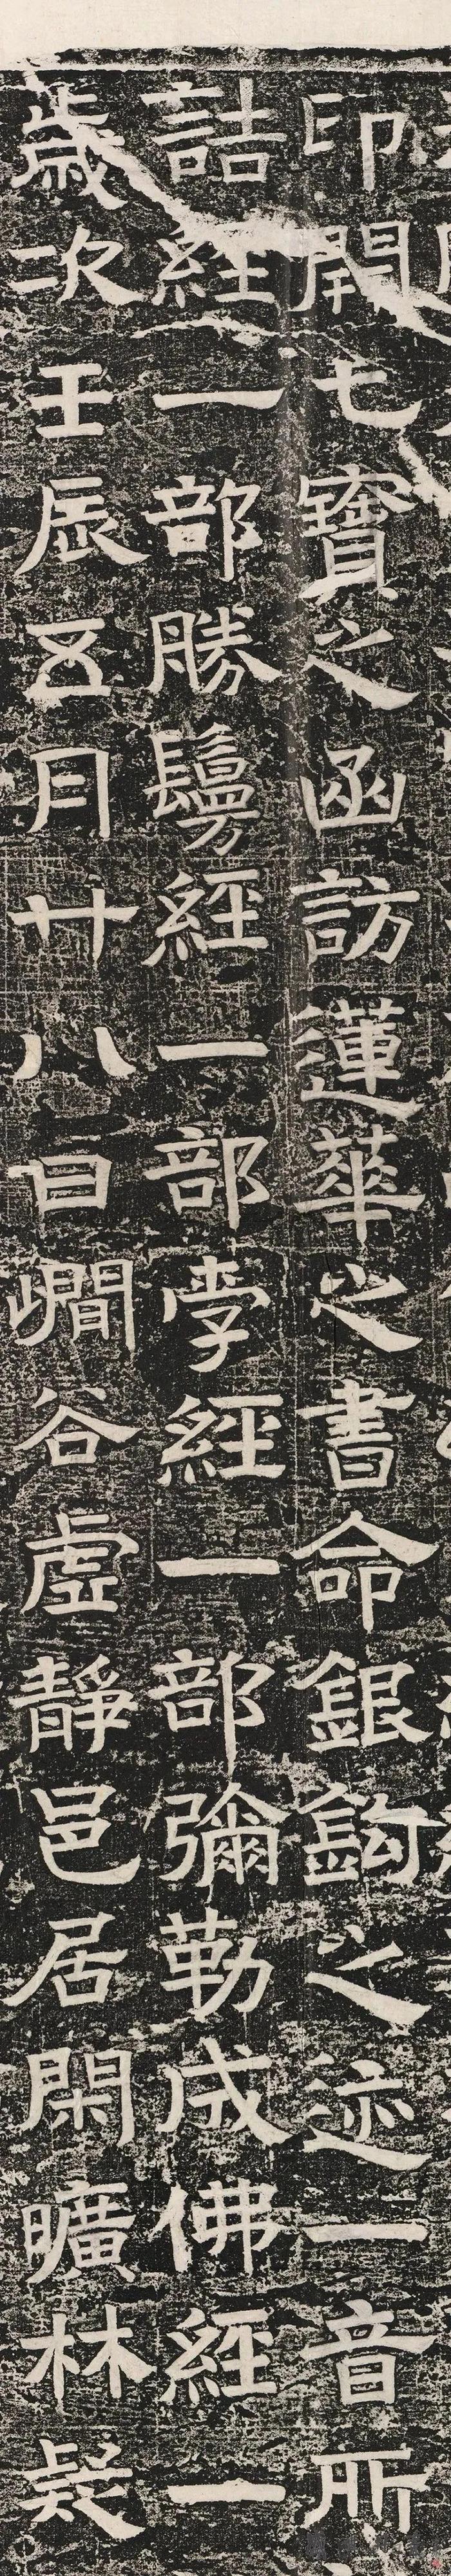 印開七寶之函訪蓮華之書命銀鉤之迹一音所
詰經一部勝鬘經一部孛經一部彌勒成佛經一
歲次壬辰五月廿八日㵎谷虛靜邑居閑曠林疑